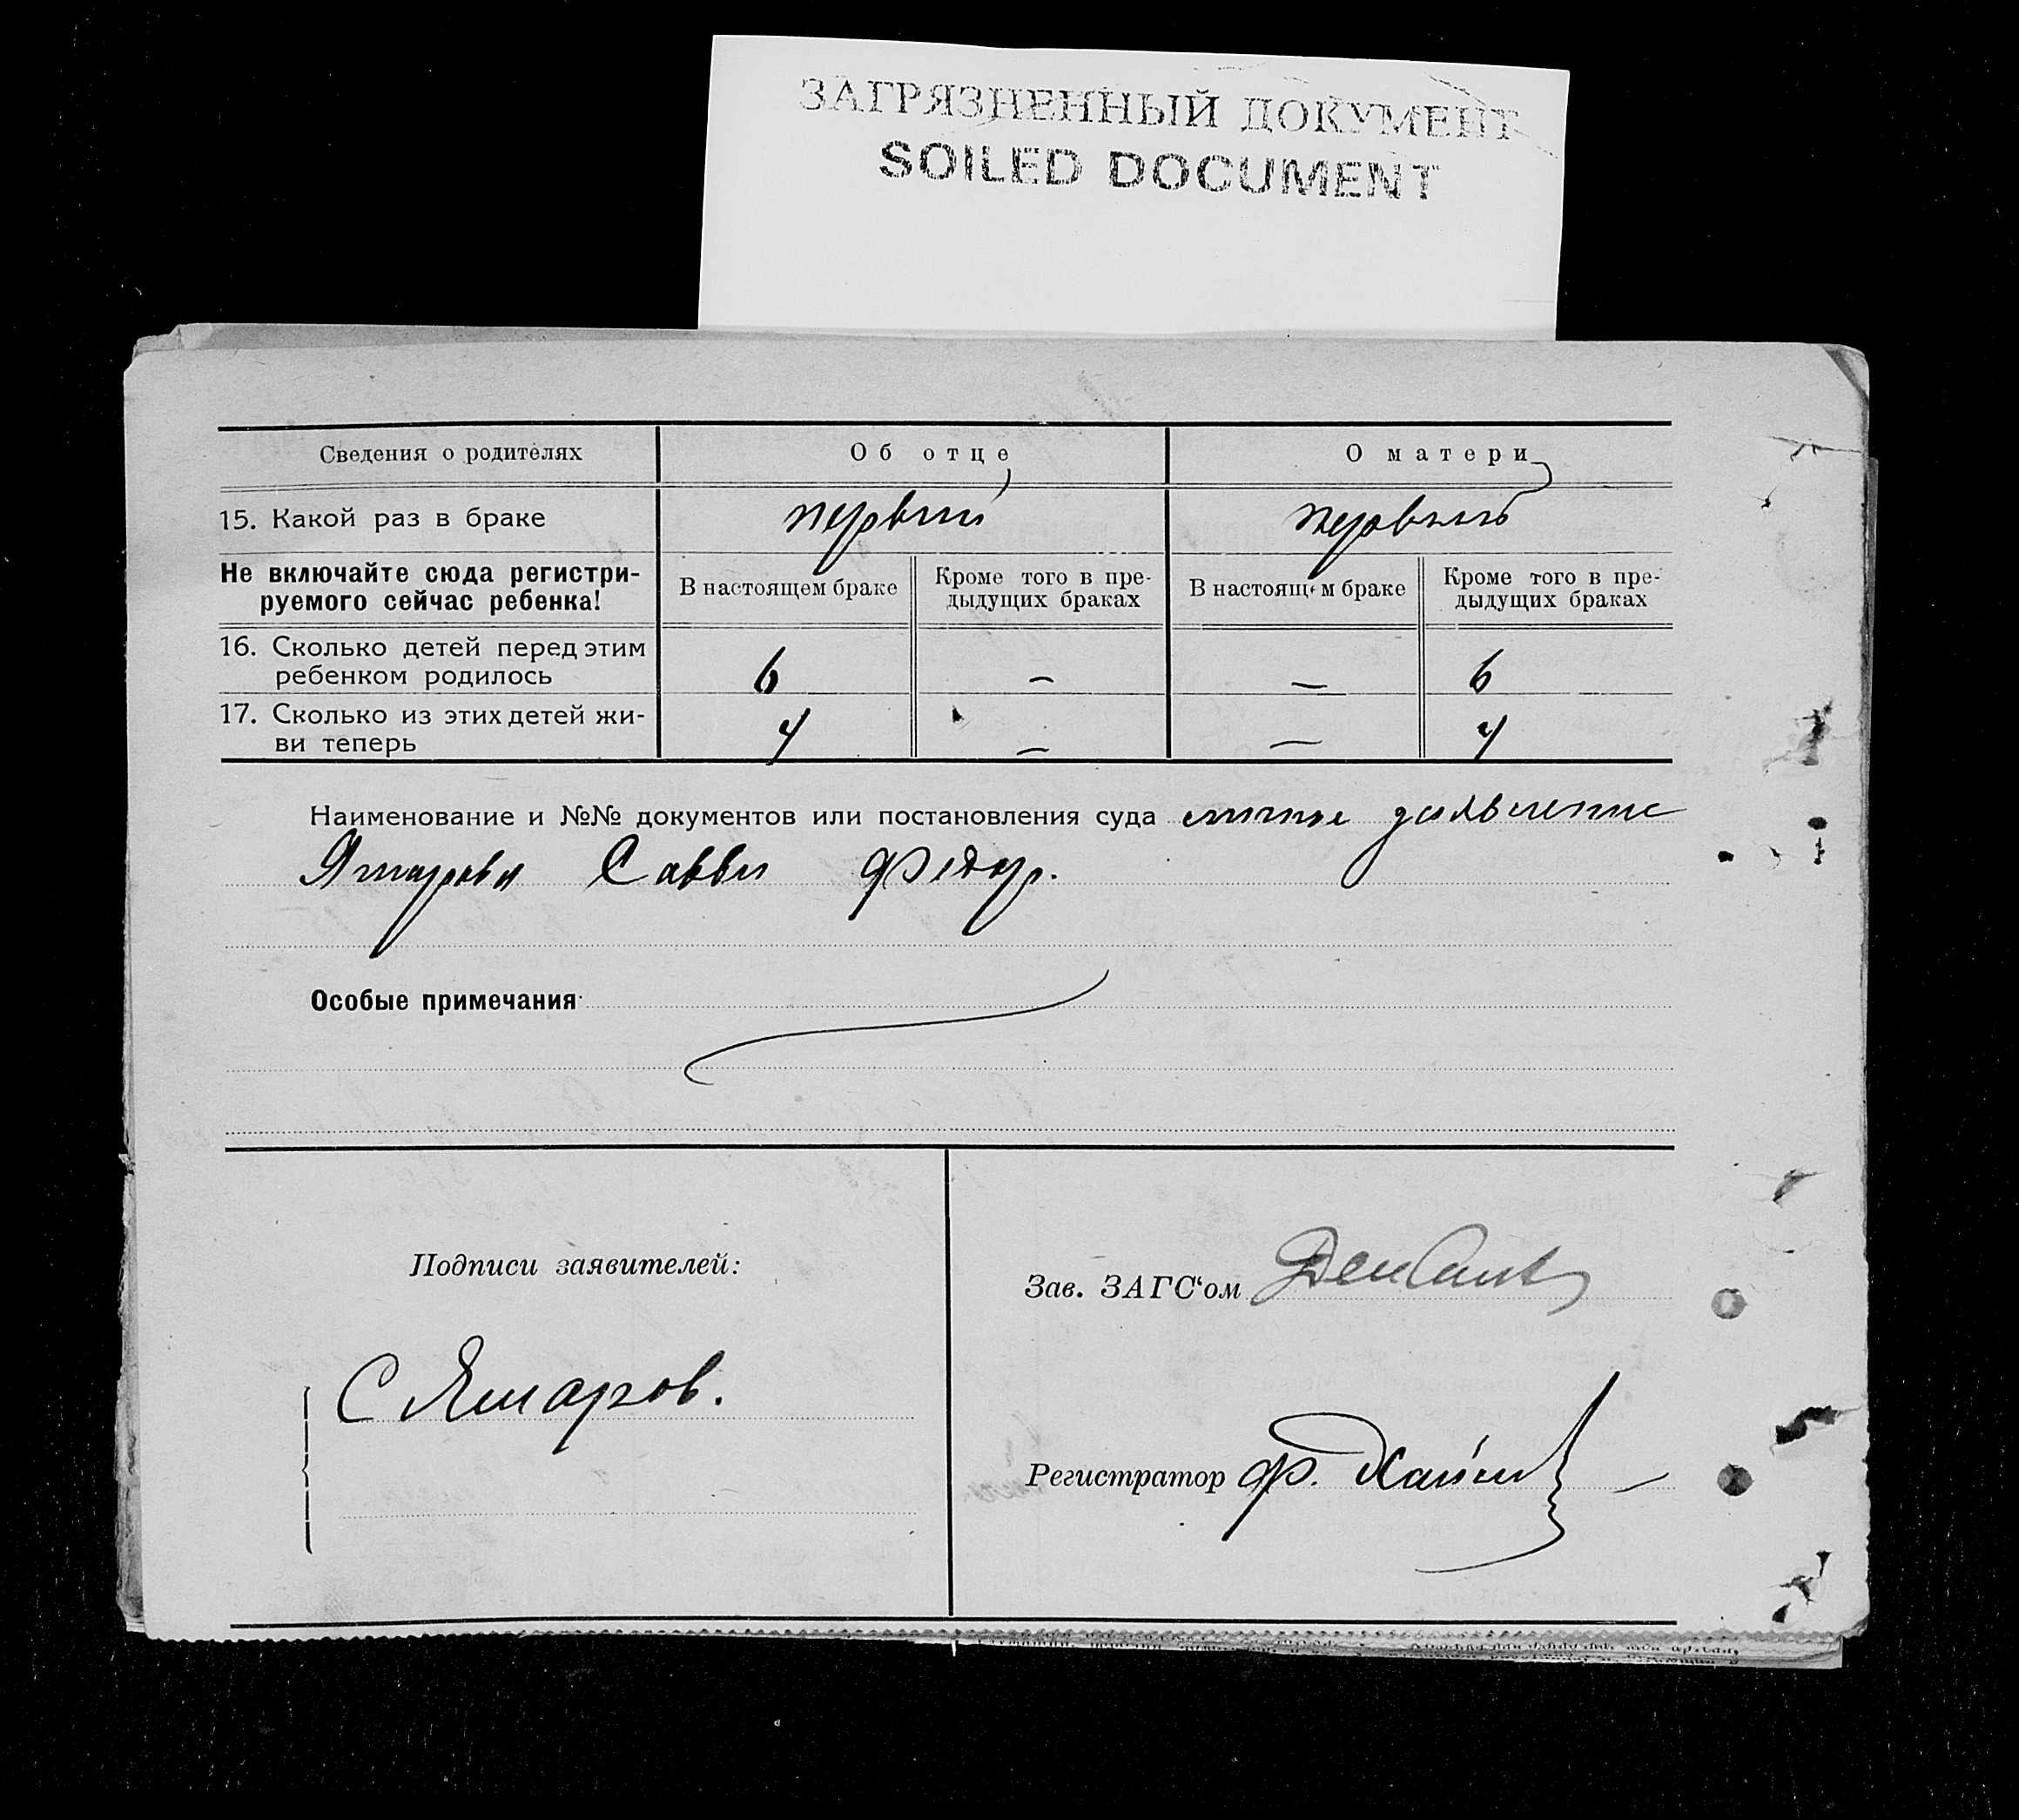 ЗАГРЯЗНЕННЫЙ ДОКУМЕНТ
SOILED DOCUMENT
Сведения о родителях Об отце О матери
15. Какой раз в браке первый первый
Не включайте сюда регистри-
руемого сейчас ребенка!
В настоящем браке
Кроме того в пре-
дыдущих браках
В настоящем браке
Кроме того в пре-
дыдущих браках
16. Сколько детей перед этим
ребенком родилось 6 — — 6
17. Сколько из этих детей жи-
ви теперь 4 — — 4
Наименование и №№ документов или постановления суда личное заявление
Яшарова Саввы Федор.
Особые примечания
Подписи заявителей:
С Яшаров.
Зав. ЗАГС‘ом
Регистратор Ф.